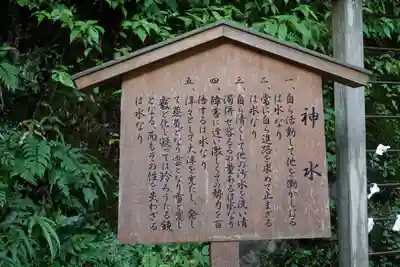 神水
一、自ら活動して他を働かしむる
は水なり
二、常に自ら進路を求めて止まざる
は水なり
三、自ら清くして他の汚水を洗い清
濁併せ容るるの量あるは水なり
四、障害に逢い激しくその勢力を百
倍するは水なり
五、洋々として大洋を充たし、発し
て蒸気となり雲となり雪と変じ
霰と化し凝っては玲ろうたる鏡
となる、而もその性を失わざる
は水なり